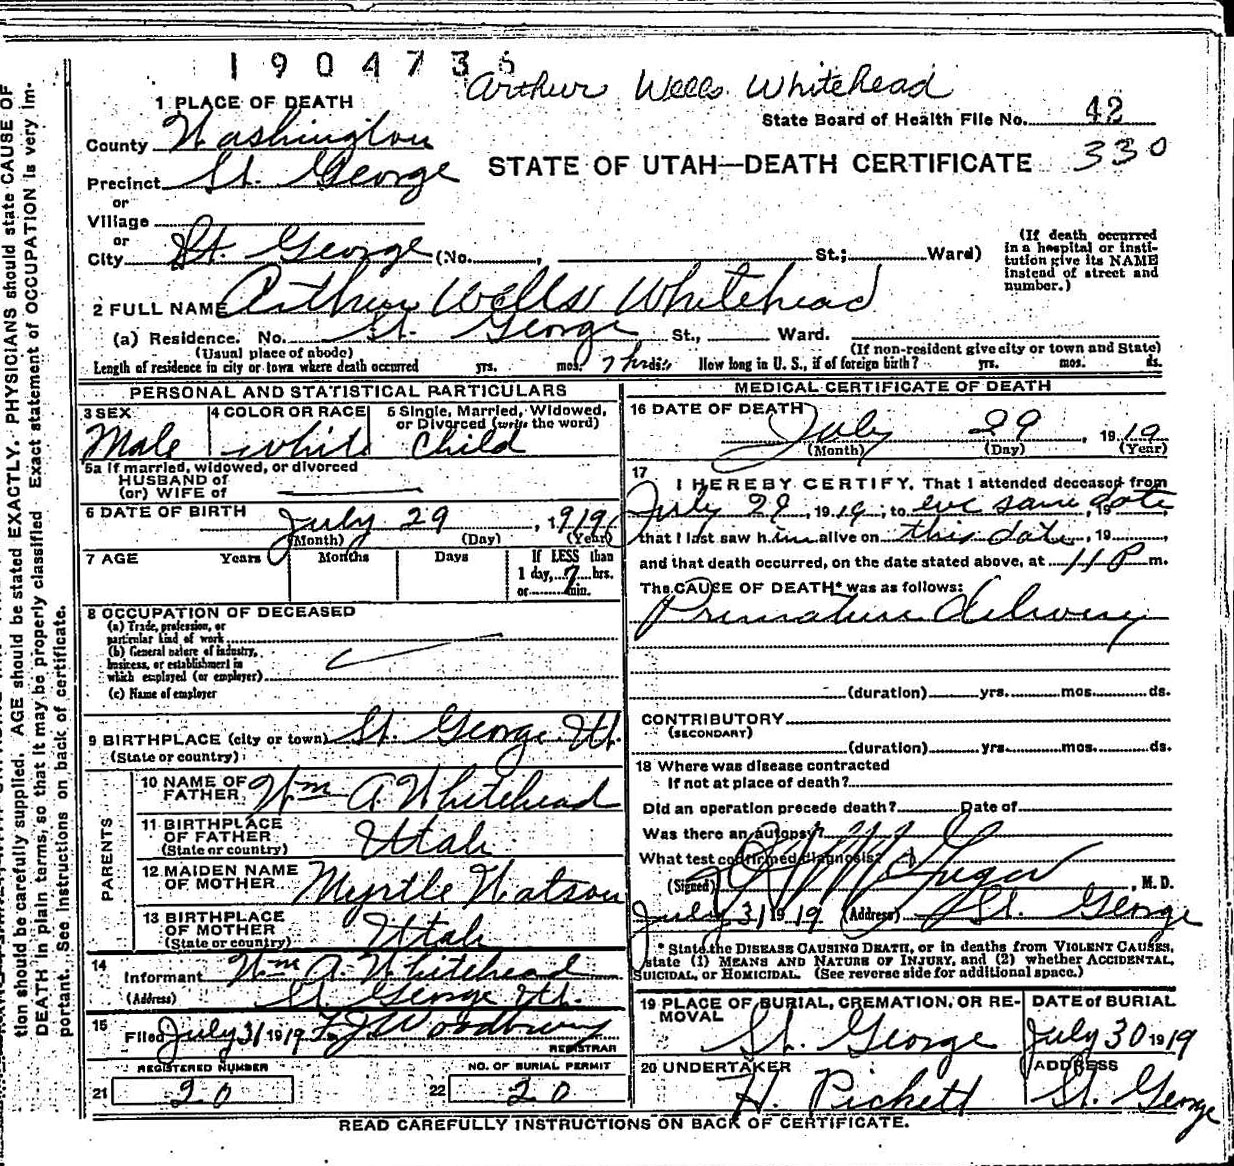 1904736
Arthur Wells Whitehead
1 PLACE OF DEATH
State Board of Health File No. 42
County Washington
STATE OF UTAH—DEATH CERTIFICATE 330
Precinct St. George
or
Village
or
City St. George (No. , St.; Ward)
(If death occurred in a hospital or insti-
tution give its NAME
instead of street and
number.)
2 FULL NAME Arthur Wells Whitehead
(a) Residence. No. St. George St., Ward.
(Usual place of abode) (If non-resident give city or town and State)
Length of residence in city or town where death occurred yrs. mos. 7 hrs ds. How long in U. S., if of foreign birth? yrs. mos. ds.
PERSONAL AND STATISTICAL PARTICULARS
3 SEX Male
4 COLOR OR RACE white
5 Single, Married, Widowed,
or Divorced (write the word)
Child
5a If married, widowed, or divorced
HUSBAND of
(or) WIFE of
6 DATE OF BIRTH July 29, 1919
(Month) (Day) (Year)
7 AGE Years Months Days If LESS than
1 day, 7 hrs.
or min.
8 OCCUPATION OF DECEASED
(a) Trade, profession, or
particular kind of work
(b) General nature of industry,
business, or establishment in
which employed (or employer)
(c) Name of employer
9 BIRTHPLACE (city or town) St. George Ut.
(State or country)
PARENTS
10 NAME OF
FATHER Wm A. Whitehead
11 BIRTHPLACE
OF FATHER
(State or country) Utah
12 MAIDEN NAME
OF MOTHER Myrtle Watson
13 BIRTHPLACE
OF MOTHER
(State or country) Utah
14 Informant Wm A. Whitehead
(Address) St. George Ut.
15 Filed July 31 1919 F J Woodbury
REGISTRAR
REGISTERED NUMBER
21 20
NO. OF BURIAL PERMIT
22 20
MEDICAL CERTIFICATE OF DEATH
16 DATE OF DEATH July 29, 1919
(Month) (Day) (Year)
17 I HEREBY CERTIFY, That I attended deceased from
July 29, 1919, to eve same date, 19
that I last saw him alive on this date, 19
and that death occurred, on the date stated above, at 11 P m.
The CAUSE OF DEATH* was as follows:
Premature delivery
(duration) yrs. mos. ds.
CONTRIBUTORY
(SECONDARY)
(duration) yrs. mos. ds.
18 Where was disease contracted
If not at place of death?
Did an operation precede death? Date of
Was there an autopsy?
What test confirmed diagnosis?
(Signed) McGregor, M.D.
July 31 1919 (Address) St. George
* State the DISEASE CAUSING DEATH, or in deaths from VIOLENT CAUSES,
state (1) MEANS AND NATURE OF INJURY, and (2) whether ACCIDENTAL,
SUICIDAL, OR HOMICIDAL. (See reverse side for additional space.)
19 PLACE OF BURIAL, CREMATION, OR RE-
MOVAL St. George
DATE of BURIAL
July 30 1919
20 UNDERTAKER
H. Pickett
ADDRESS
St. George
READ CAREFULLY INSTRUCTIONS ON BACK OF CERTIFICATE.
tion should be carefully supplied. AGE should be stated EXACTLY. PHYSICIANS should state CAUSE OF
DEATH in plain terms, so that it may be properly classified. Exact statement of OCCUPATION is very im-
portant. See instructions on back of certificate.